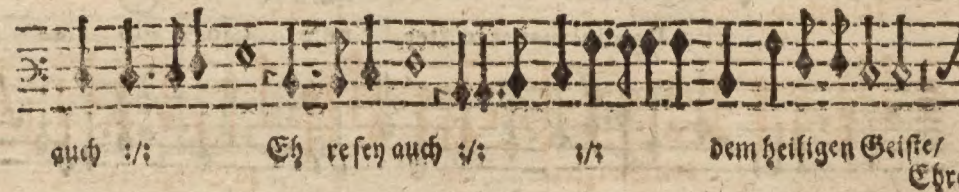 auch :/: Eh re sey auch :/: :/: dem heiligen Geiste/
Ehre